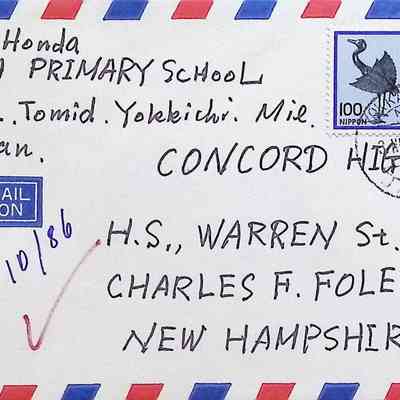 Honda
PRIMARY SCHOOL
Tomid. Yokkichi. Mie.
an.
100
NIPPON
CONCORD HIG
AIL
ON
10/86
H.S., WARREN St.
CHARLES F. FOLE
NEW HAMPSHIR